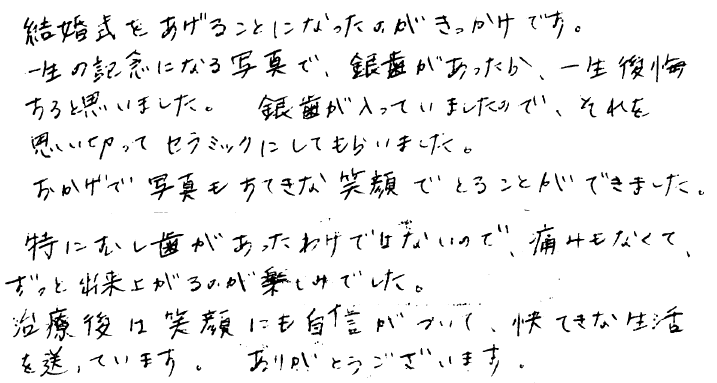 結婚式をあげることになったのがきっかけです。
一生の記念になる写真で、銀歯があったら、一生後悔
すると思いました。 銀歯が入っていましたので、それを
思い切ってセラミックにしてもらいました。
おかげで写真もすてきな笑顔でとることができました。
特にむし歯があったわけではないので、痛みもなくて、
ずっと出来上がるのが楽しみでした。
治療後は笑顔にも自信がついて、快てきな生活
を送っています。 ありがとうございます。